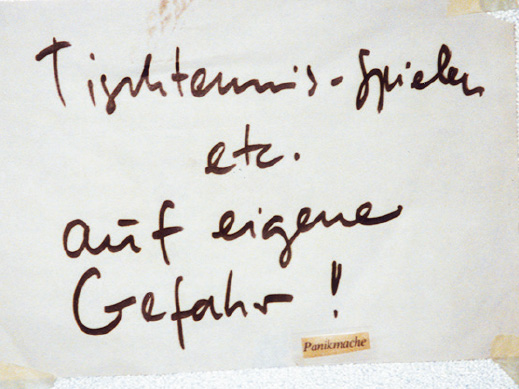 Tischtennis-Spielen
etc.
auf eigene
Gefahr!
Panikmache